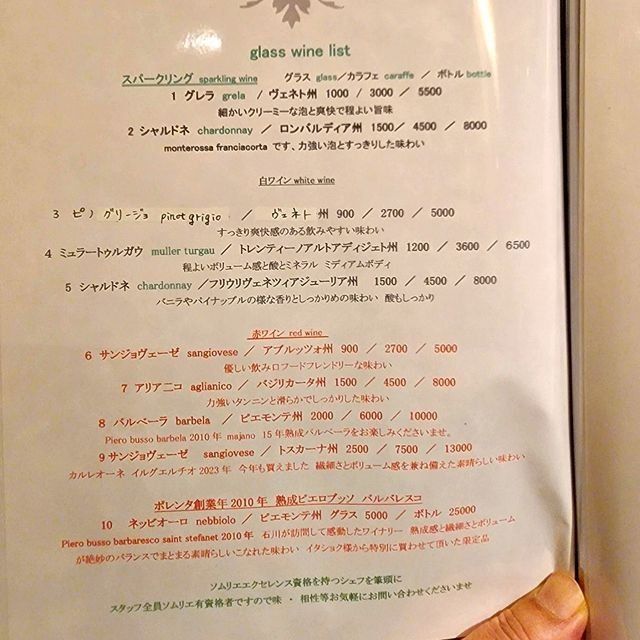 glass wine list
スパークリング sparkling wine グラス glass／カラフェ caraffe ／ ボトル bottle
1 グレラ grela ／ ヴェネト州 1000 ／ 3000 ／ 5500
細かいクリーミーな泡と爽快で程よい旨味
2 シャルドネ chardonnay ／ ロンバルディア州 1500／ 4500 ／ 8000
monterossa franciacorta です、力強い泡とすっきりした味わい
白ワイン white wine
3 ピノ グリージョ pinot grigio ／ ヴェネト 州 900 ／ 2700 ／ 5000
すっきり爽快感のある飲みやすい味わい
4 ミュラートゥルガウ muller turgau ／ トレンティーノアルトアディジェト州 1200 ／ 3600 ／ 6500
程よいボリューム感と酸とミネラル ミディアムボディ
5 シャルドネ chardonnay ／フリウリヴェネツィアジューリア州 1500 ／ 4500 ／ 8000
バニラやパイナップルの様な香りとしっかりめの味わい 酸もしっかり
赤ワイン red wine
6 サンジョヴェーゼ sangiovese ／ アブルッツォ州 900 ／ 2700 ／ 5000
優しい飲み口フードフレンドリーな味わい
7 アリアニコ aglianico ／ バジリカータ州 1500 ／ 4500 ／ 8000
力強いタンニンと滑らかでしっかりした味わい
8 バルベーラ barbela ／ ピエモンテ州 2000 ／ 6000 ／ 10000
Piero busso barbela 2010 年 majano 15 年熟成バルベーラをお楽しみくださいませ。
9 サンジョヴェーゼ sangiovese ／ トスカーナ州 2500 ／ 7500 ／ 13000
カルレオーネ イルグエルチオ 2023 年 今年も買えました 繊細さとボリューム感を兼ね備えた素晴らしい味わい
ポレンタ創業年 2010 年 熟成ピエロブッソ バルバレスコ
10 ネッビオーロ nebbiolo ／ ピエモンテ州 グラス 5000 ／ ボトル 25000
Piero busso barbaresco saint stefanet 2010 年 石川が訪問して感動したワイナリー 熟成感と繊細さとボリューム
が絶妙のバランスでまとまる素晴らしいこなれた味わい イタショク様から特別に買わせて頂いた限定品
ソムリエエクセレンス資格を持つシェフを筆頭に
スタッフ全員ソムリエ有資格者ですので味 ・ 相性等お気軽にお問い合わせくださいませ